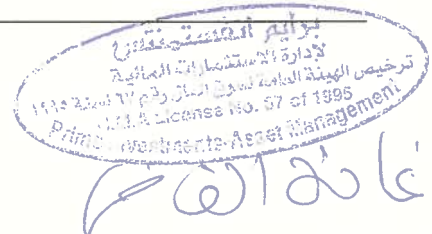 برايم انفستمنتس
لإدارة الاستثمارات المالية
ترخيص الهيئة العامة لسوق المال رقم ٦٧ لسنة ١٩٩٥
License No. 67 of 1995
Prime Investments Asset Management